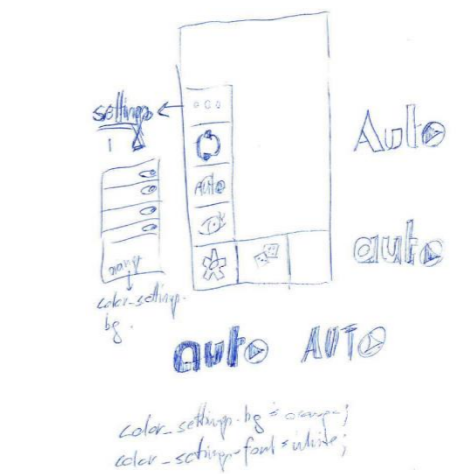 settings
Auto
Auto
auto
orange
color_settings.
bg.
auto AUTO
color_settings.bg = orange;
color_settings-font = white;